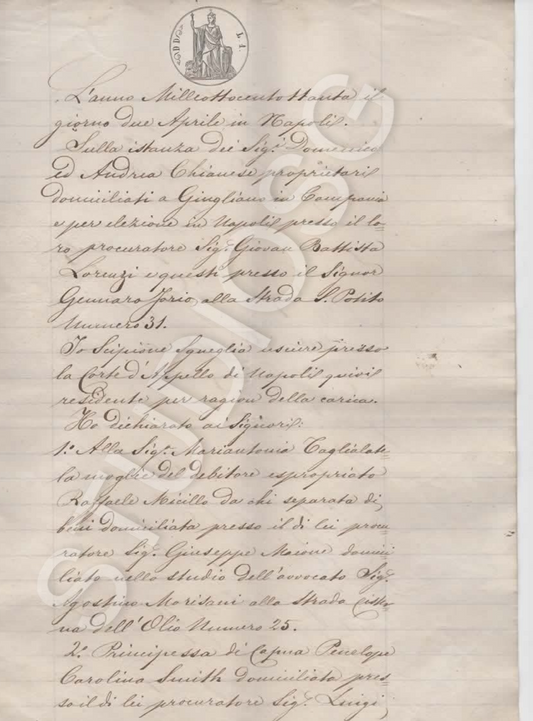 L'anno Milleottocentottanta il
giorno due Aprile in Napoli.
Sulla istanza dei Sig.ri Domenico
ed Andrea Chianese proprietarii
domiciliati a Giugliano in Campania
e per elezione in Napoli presso il lo-
ro procuratore Sig.r Giovan Battista
Lorenzi e questi presso il Signor
Gennaro Iorio, alla Strada S. Potito
Numero 31.
Io Scipione Squeglia usciere presso
la Corte d'Appello di Napoli quivi
residente per ragion della carica.
Ho dichiarato ai Signori:
1.° Alla Sig.ra Mariantonia Taglialate
la moglie del debitore espropriato
Raffaele Micillo da chi separata di
beni domiciliata presso il di lei procu-
ratore Sig.r Giuseppe Maione domici
liato nello studio dell'avvocato Sig.r
Agostino Marisani alla strada Cister
na dell'Olio Numero 25.
2.° Principessa di Capua Penelope
Carolina Smith domiciliata pres
so il di lei procuratore Sig.r Luigi
STUDIOSC